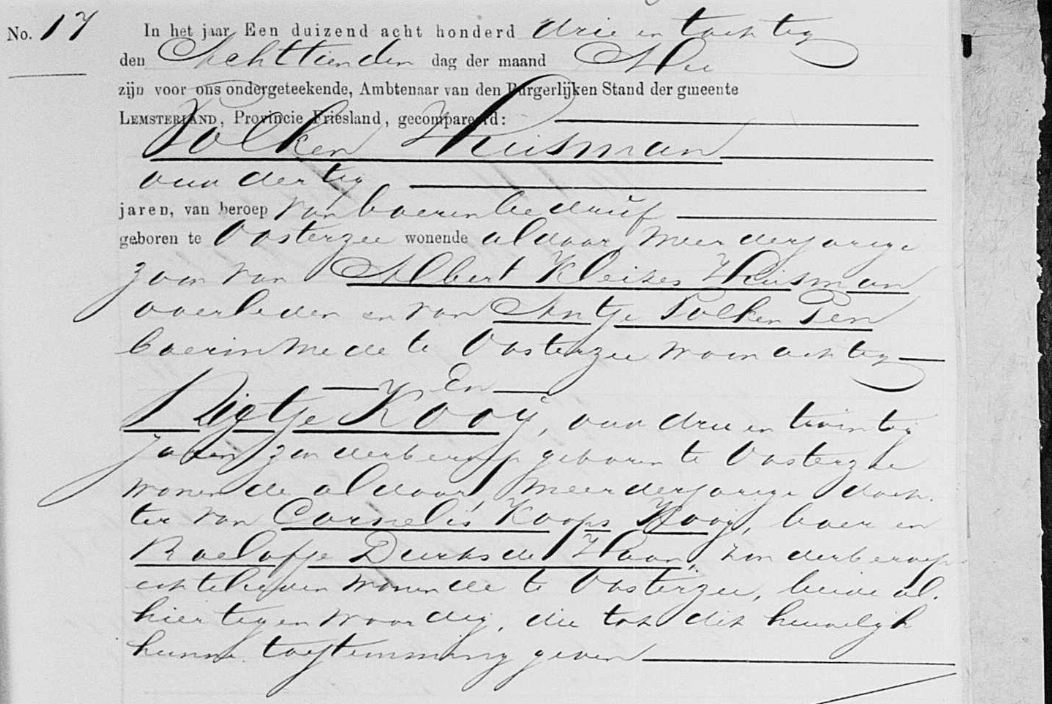 No. 17 In het jaar Een duizend acht honderd drie en tachtig
den Achttienden dag der maand Mei
zijn voor ons ondergeteekende, Ambtenaar van den Burgerlijken Stand der gmeente
LEMSTERLAND, Provincie Friesland, gecompareerd:
Folkert Huisman
oud dertig
jaren, van beroep van boerenbedrijf
geboren te Oosterzee wonende aldaar, meerderjarige
zoon van Albert Kleizes Huisman
overleden en van Antje Folkerts Pen
boerin mede te Oosterzee woonachtig
En
Digtje Kooij, oud drie en twintig
jaren, zonder beroep geboren te Oosterzee
wonende aldaar, meerderjarige doch-
ter van Cornelis Koops Kooij, boer en
Roelofje Durks de Haan, zonder beroep
echtelieden wonende te Oosterzee, beide al-
hier tegenwoordig, die tot dit huwelijk
hunne toestemming geven